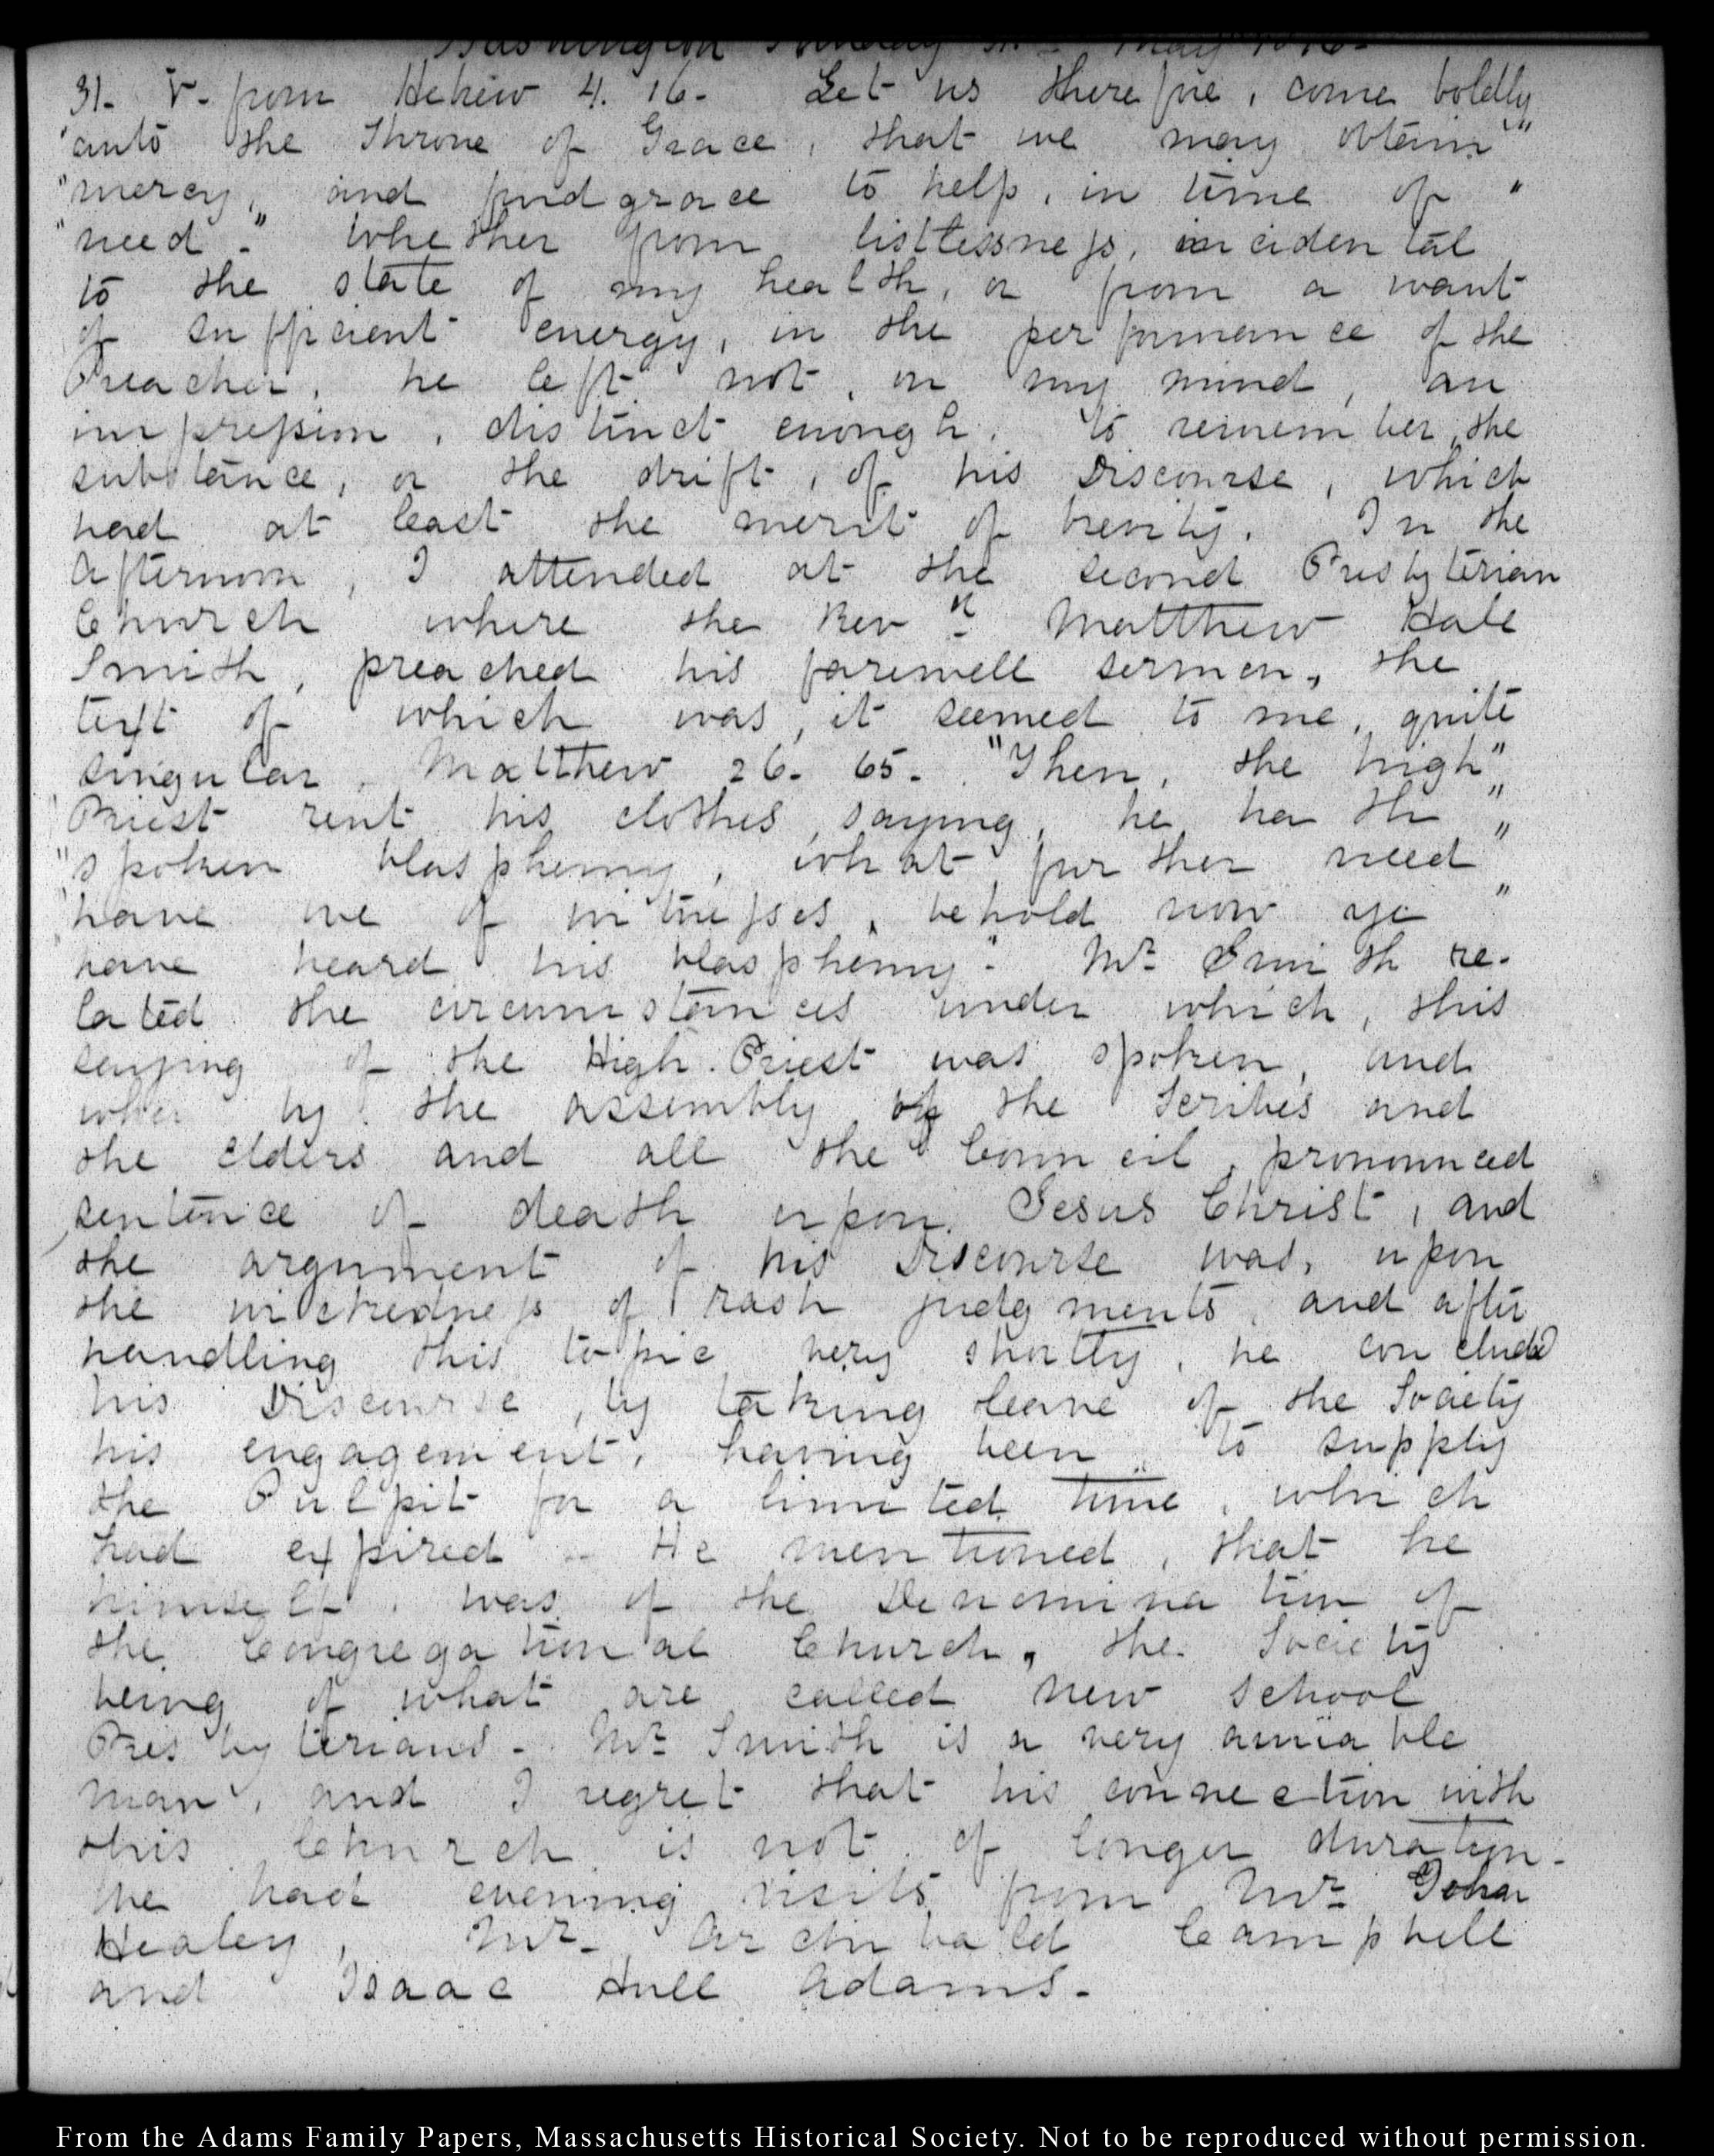 Washington Sunday 31. May 1846.
31. V. from Hebrew 4. 16. Let us therefore, come boldly
"unto the Throne of Grace, that we may obtain"
"mercy, and find grace to help, in time of "
"need." Whether from listlessness, incidental
to the state of my health, or from a want
of sufficient energy, in the performance of the
Preacher, he left not, on my mind, an
impression, distinct enough, to remember, the
substance, or the drift, of his Discourse, which
had at least the merit of brevity. In the
afternoon, I attended at the second Presbyterian
Church where the Revd. Matthew Hale
Smith, preached his farewell sermon, the
text of which was, it seemed to me, quite
singular. Matthew 26. 65. "Then, the high"
Priest rent his clothes, saying, he hath "
"spoken blasphemy, what further need "
"have we of witnesses, behold now ye "
"have heard his blasphemy." Mr. Smith re-
lated the circumstances under which, this
saying of the High Priest was spoken, and
when by the assembly of the Scribes and
the elders and all the Council, pronounced
sentence of death upon Jesus Christ, and
the argument of his Discourse was, upon
the wickedness of rash judgments, and after
handling this topic very shortly, he concluded
his Discourse, by taking leave of the Society
his engagement, having been to supply
the Pulpit for a limited time, which
had expired - He mentioned, that he
himself, was of the Denomination of
the Congregational Church, the Society
being of what are called New School
Presbyterians - Mr. Smith is a very amiable
man, and I regret that his connection with
this Church is not of longer duration -
We had evening visits from Mr. John
Healey, Mr. Archibald Campbell
and Isaac Hull Adams.
From the Adams Family Papers, Massachusetts Historical Society. Not to be reproduced without permission.